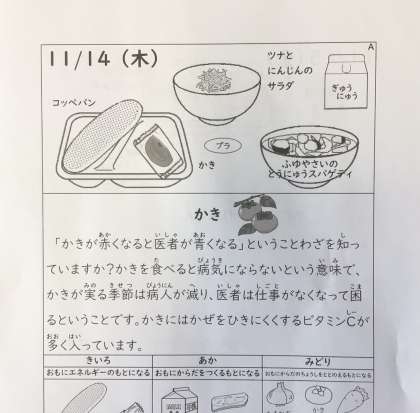 A
11/14（木）
ツナと
にんじんの
サラダ
ぎゅう
にゅう
コッペパン
プラ
かき
ふゆやさいの
とうにゅうスパゲティ
かき
「かきが赤くなると医者が青くなる」ということわざを知っ
ていますか？かきを食べると病気にならないという意味で、
かきが実る季節は病人が減り、医者は仕事がなくなって困
るということです。かきにはかぜをひきにくくするビタミンCが
多く入っています。
きいろ
あか
みどり
おもにエネルギーのもとになる
おもにからだをつくるもとになる
おもにからだのちょうしをととのえるもとになる